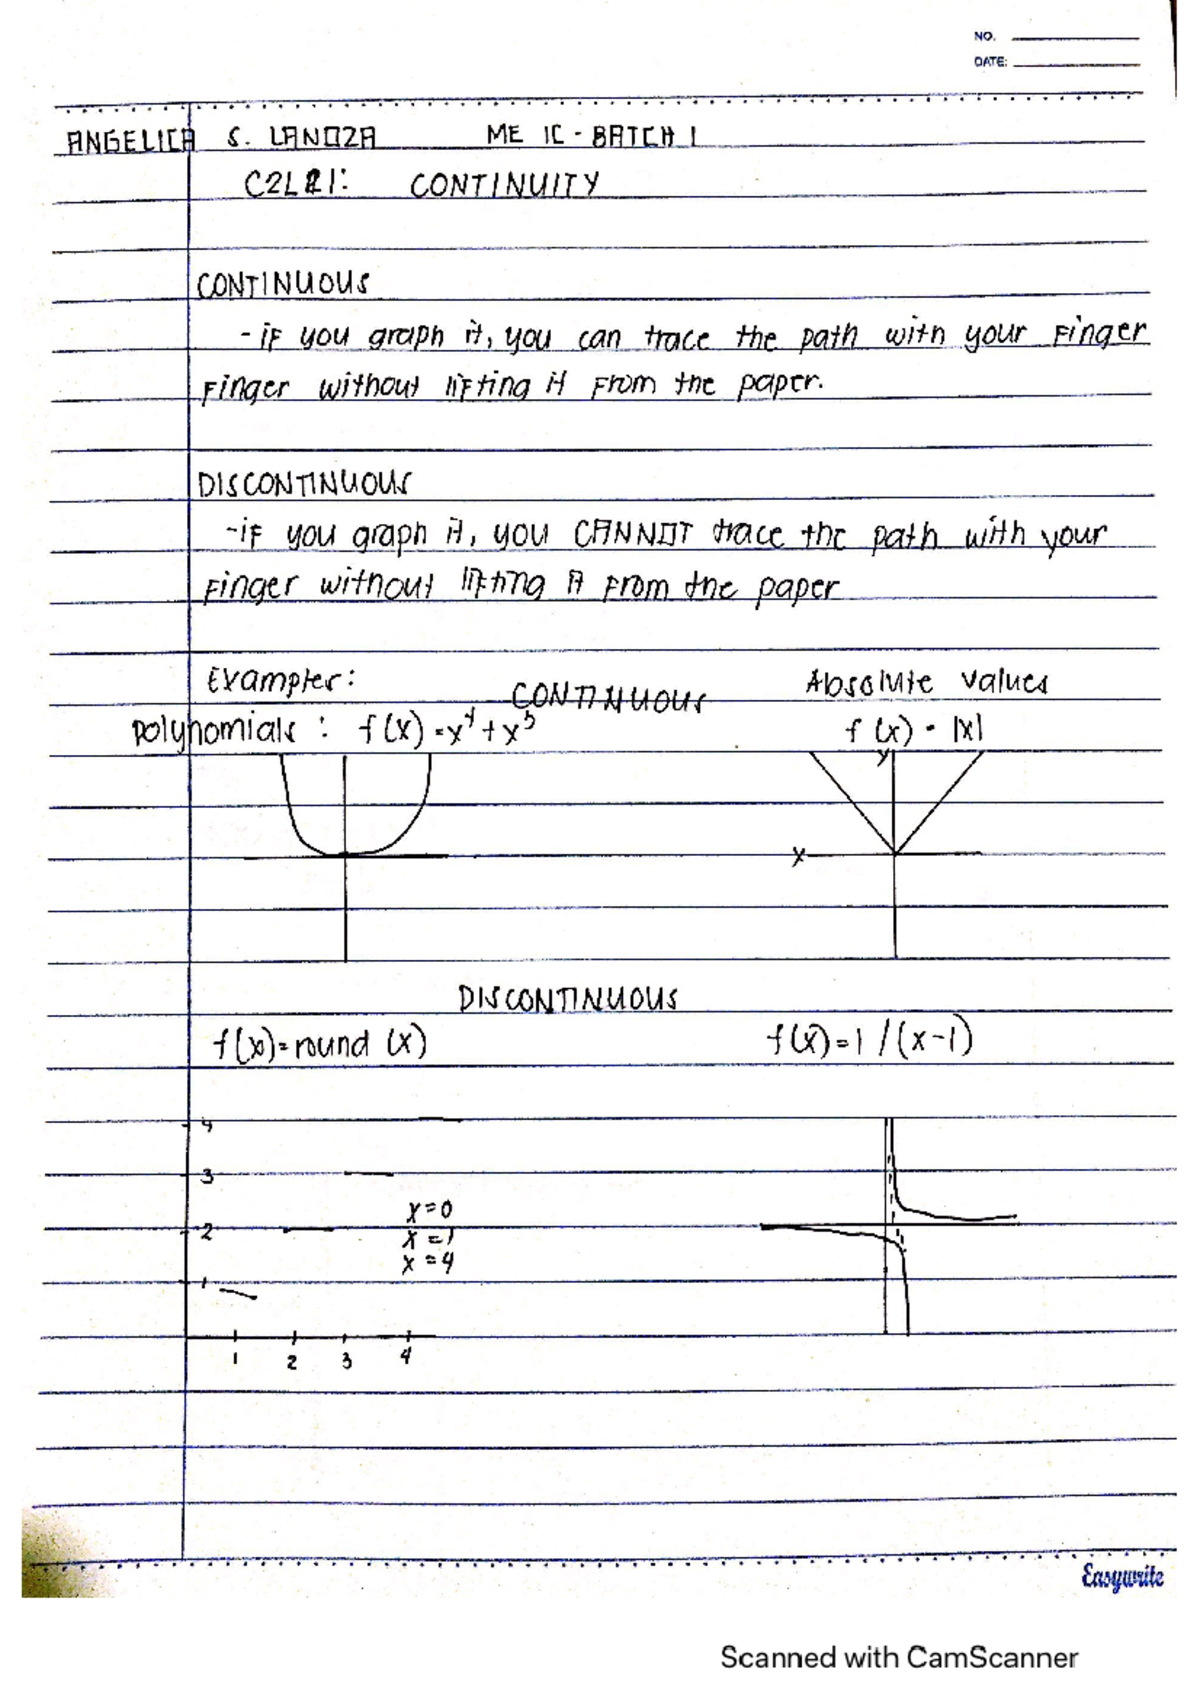 NO.
DATE:
ANGELICA S. LANOZA ME 1C - BATCH 1
C2L1: CONTINUITY
CONTINUOUS
- if you graph it, you can trace the path with your finger
finger without lifting it from the paper.
DISCONTINUOUS
- if you graph it, you CANNOT trace the path with your
finger without lifting it from the paper
Examples:
CONTINUOUS
Absolute values
Polynomials : f(x) = x⁴ + x³
f(x) = |x|
y
x
DISCONTINUOUS
f(x) = round (x)
f(x) = 1 / (x-1)
4
3
2
1
x = 0
x = 1
x = 4
1 2 3 4
Easywrite
Scanned with CamScanner